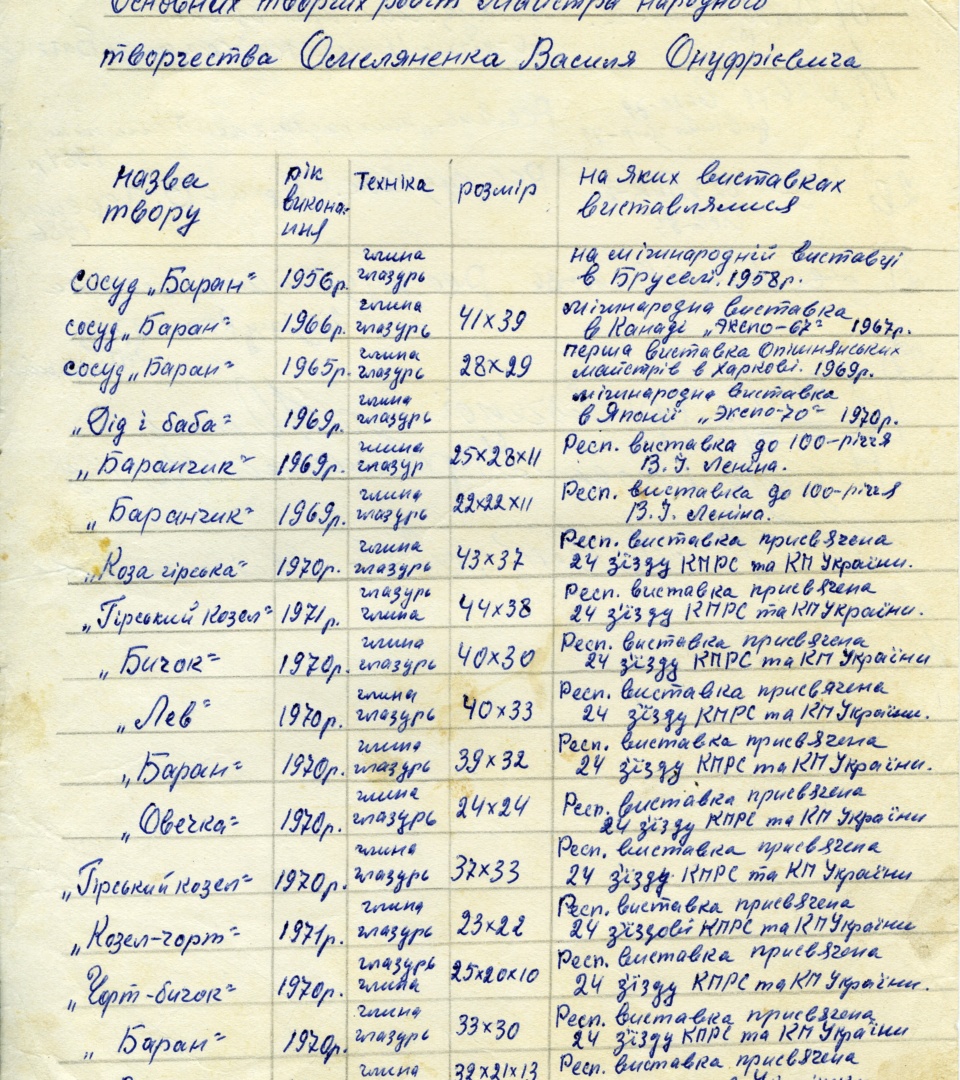 Основних творчих робіт майстра народного
творчества Омеляненка Василя Онуфрієвича
назва твору рік викона-ння Техніка розмір на яких виставках виставлялися
сосуд „Баран“ 1956р. глина глазурь на міжнародній виставці в Бруселі. 1958р.
сосуд „Баран“ 1966р. глина глазурь 41х39 міжнародна виставка в Канаді „Экспо-67“ 1967р.
сосуд „Баран“ 1965р. глина глазурь 28х29 перша виставка Опішнянських майстрів в Харкові. 1969р.
„Дід і баба“ 1969р. глина глазурь міжнародна виставка в Японії „Экспо-70“ 1970р.
„Баранчик“ 1969р. глина глазур 25х28х11 Респ. виставка до 100-річчя В.І. Леніна.
„Баранчик“ 1969р. глина глазурь 22х22х11 Респ. виставка до 100-річчя В.І. Леніна.
„Коза гірська“ 1970р. глина глазурь 43х37 Респ. виставка присвячена 24 з'їзду КПРС та КП України.
„Гірський козел“ 1971р. глазурь глина 44х38 Респ. виставка присвячена 24 з'їзду КПРС та КП України.
„Бичок“ 1970р. глина глазурь 40х30 Респ. виставка присвячена 24 з'їзду КПРС та КП України
„Лев“ 1970р. глина глазурь 40х33 Респ. виставка присвячена 24 з'їзду КПРС та КП України.
„Баран“ 1970р. глина глазурь 39х32 Респ. виставка присвячена 24 з'їзду КПРС та КП України.
„Овечка“ 1970р. глина глазурь 24х24 Респ. виставка присвячена 24 з'їзду КПРС та КП України
„Гірський козел“ 1970р. глина глазурь 37х33 Респ. виставка присвячена 24 з'їзду КПРС та КП України
„Козел-чорт“ 1971р. глина глазурь 23х22 Респ. виставка присвячена 24 з'їздові КПРС та КП України
„Чорт-бичок“ 1970р. глазурь глина 25х20х10 Респ. виставка присвячена 24 з'їзду КПРС та КП України.
„Баран“ 1970р. глина глазурь 33х30 Респ. виставка присвячена 24 з'їзду КПРС та КП України
глина 39х21х13 Респ. виставка присвячена